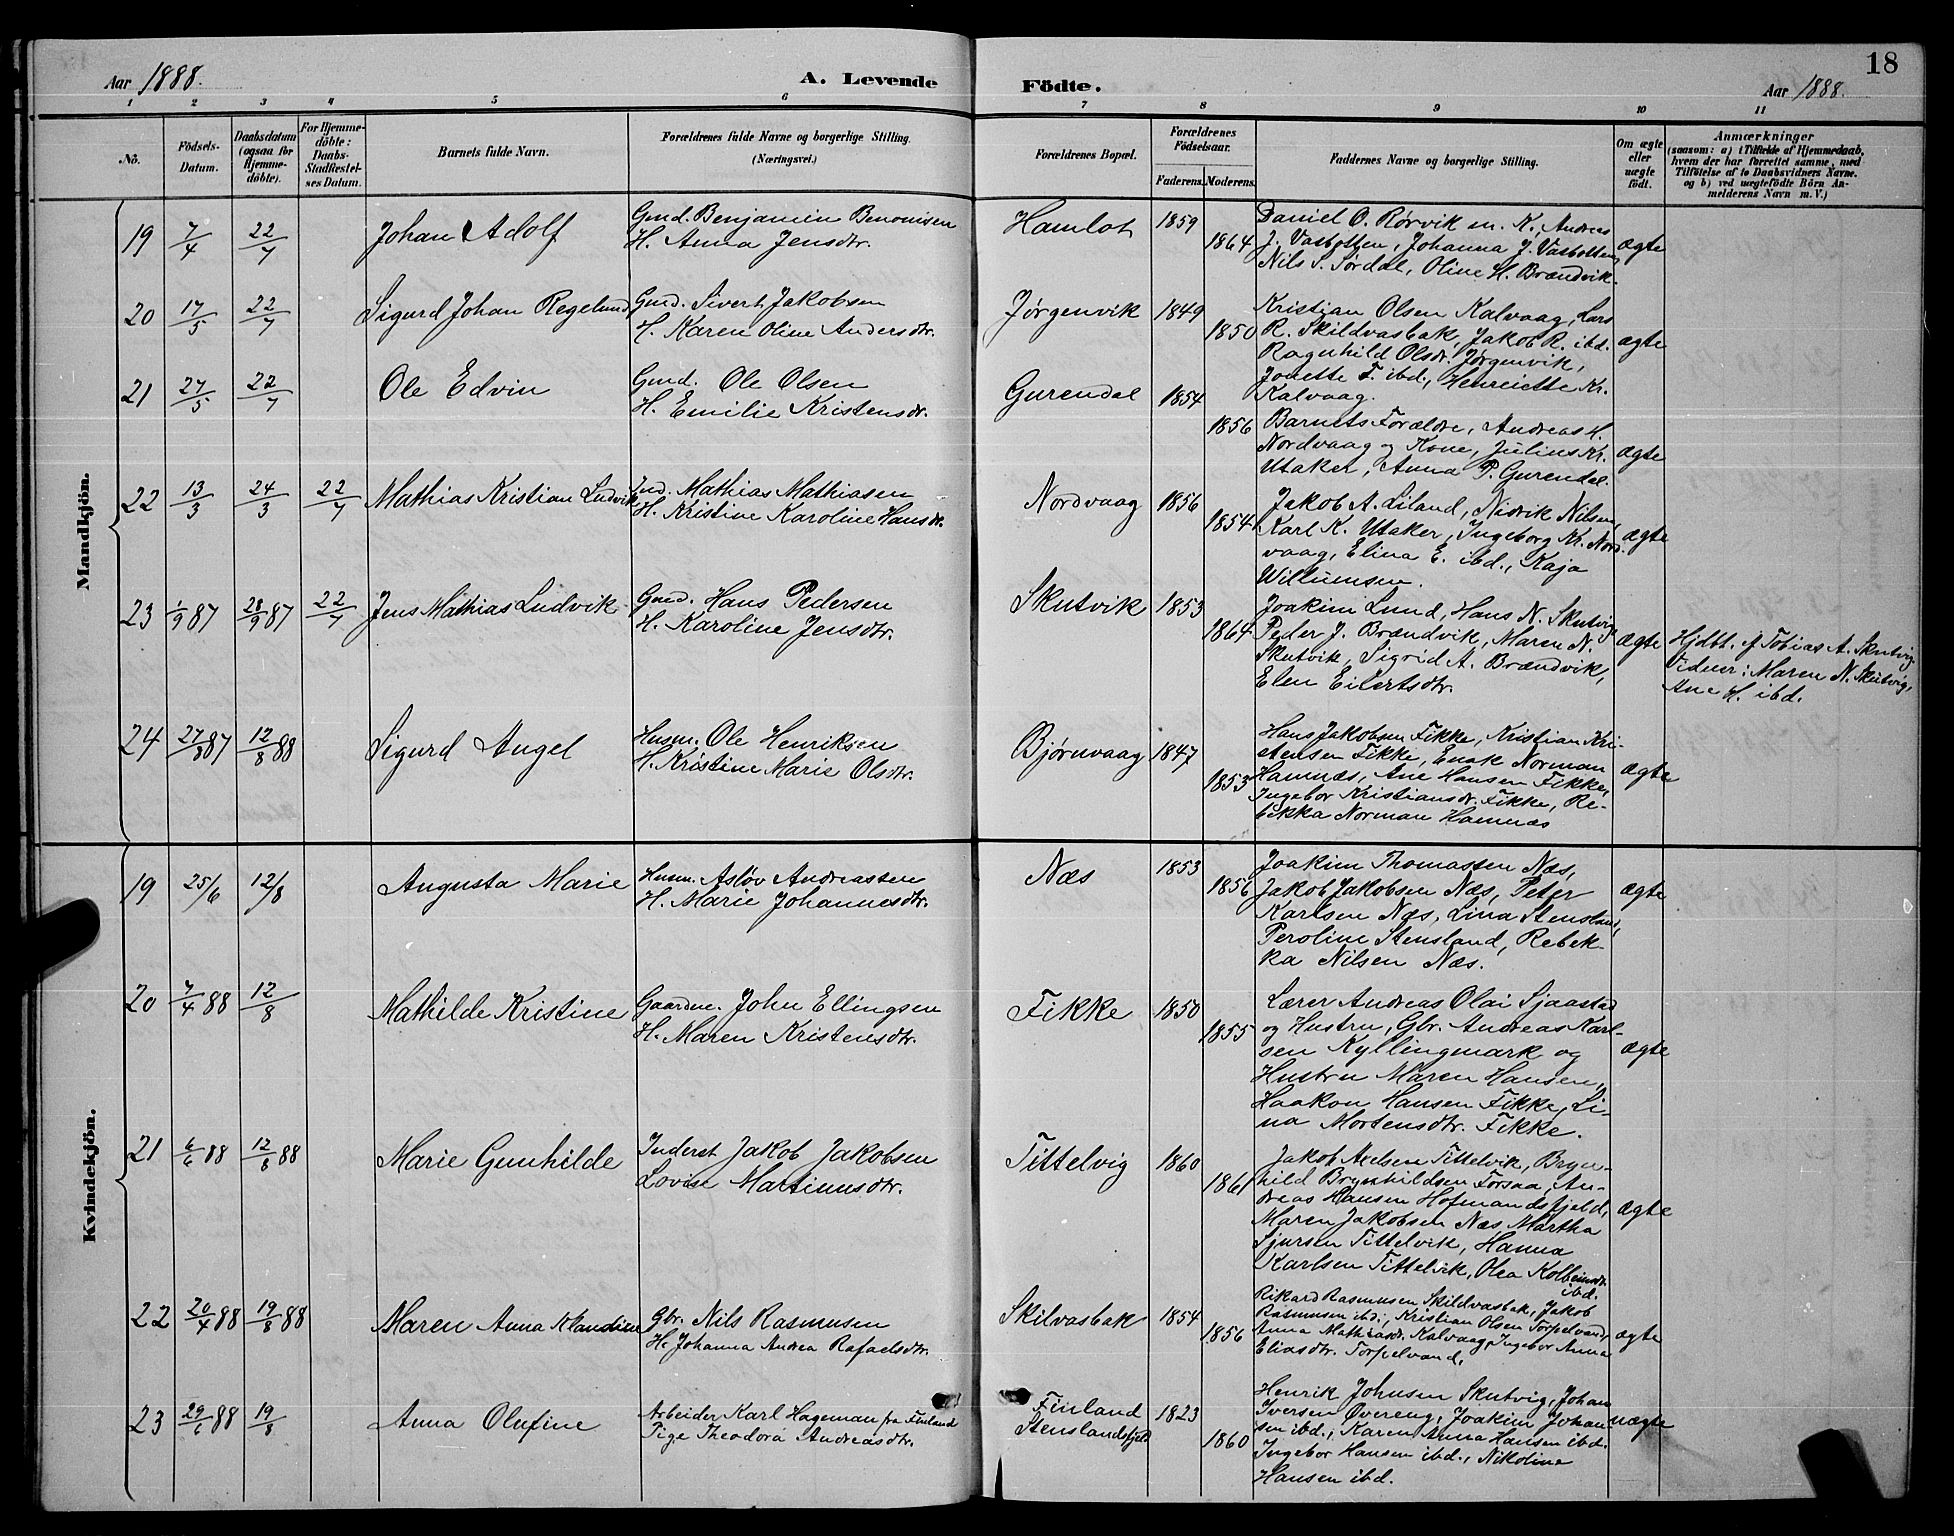 18
Aar 1888. A. Levende Födte. Aar 1888.
1 2 3 4 5 6 7 8 9 10 11
No. Födsels-Datum. Daabsdatum (ogsaa for Hjemme-döbte). For Hjemme-döbte: Daabs-Stadfæstel-ses Datum. Barnets fulde Navn. Forældrenes fulde Navne og borgerlige Stilling. (Næringsvei.) Forældrenes Bopæl. Forældrenes Födselsaar. Faderens. Moderens. Faddernes Navne og borgerlige Stilling. Om ægte eller uægte födt. Anmærkninger (saasom: a) i Tilfælde af Hjemmedaab, hvem der har forrettet samme, med Tilföielse af to Daabsvidners Navne. og b) ved uægtefödte Börn An-melderens Navn m. V.)
Mandkjön.
19 7/4 22/7 Johan Adolf Gmd. Benjamin Benonisen
H. Anna Jensdtr. Hamlot 1859 1864
Daniel O. Rørvik m. K. Andreas
J. Vasbotten, Johanna J. Vasbotten,
Nils S. Sørdal, Oline H. Brændvik.
ægte
20 17/5 22/7 Sigurd Johan Regelund Gmd. Sivert Jakobsen
H. Karen Oline Andersdtr. Jørgenvik 1849 1850
Kristian Olsen Kalvaag, Lars
R. Skildvasbak, Jakob R. ibd.
Ragnhild Olsdr. Jørgenvik,
Jonette F. ibd., Henriette Kr.
Kalvaag.
ægte
21 27/5 22/7 Ole Edvin Gmd. Ole Olsen
H. Emilie Kristensdr. Gurendal 1854 1856
Barnets Forældre, Andreas H.
Nordvaag og Kone, Julius Kr.
Utaker, Anna P. Gurendal.
ægte
22 13/3 24/3 22/7 Mathias Kristian Ludvik Ind. Mathias Mathiasen
H. Kristine Karoline Hansdr. Nordvaag 1856 1854
Jakob A. Liland, Nidrik Nilsen,
Karl K. Utaker, Ingeborg Kr. Nord-
vaag, Elina E. ibd., Kaja
Willumsen.
ægte
23 1/9 87 28/9 87 22/7 Jens Mathias Ludvik Gmd. Hans Pedersen
H. Karoline Jensdtr. Skutvik 1853 1864
Joakim Lund, Hans N. Skutvig
Peder J. Brændvik, Maren N.
Skutvik, Sigrid A. Brændvik,
Elen Eilertsdtr.
ægte
Hjdbt. af Tobias A. Skutvig
Vidner: Maren N. Skutvig,
Ane H. ibd.
24 27/8 87 12/8 88 Sigurd Angel Husm. Ole Henriksen
H. Kristine Marie Olsdtr. Bjørnvaag 1847 1853
Hans Jakobsen Fikke, Kristian Kri-
stensen Fikke, Enok Norman
Hamnæs, Ane Hansen Fikke,
Ingebor Kristiansdr. Fikke, Re-
bekka Norman Hamnæs
ægte
Kvindekjön.
19 25/6 12/8 Augusta Marie Husm. Asløv Andreassen
H. Marie Johannesdtr. Næs 1853 1856
Joakim Thomassen Næs,
Jakob Jakobsen Næs, Peter
Karlsen Næs, Lina Stensland,
Peroline Stensland, Rebek-
ka Nilsen Næs.
ægte
20 7/4 88 12/8 Mathilde Kristine Gaardm. John Ellingsen
H. Maren Kristensdtr. Fikke 1850 1855
Lærer Andreas Olai Sjaastad
og Hustru, Gbr. Andreas Karl-
sen Kyllingmark og
Hustru Maren Hansen,
Haakon Hansen Fikke, Li-
na Mortensdtr. Fikke.
ægte
21 6/6 88 12/8 88 Marie Gunhilde Inderst Jakob Jakobsen
Lovise Martinusdtr. Tittelvig 1860 1861
Jakob Axelsen Tittelvik, Bryn-
hild Brynhildsen Forsaa, An-
dreas Hansen Hofmandsfjeld,
Maren Jakobsen Næs Martha
Sjursen Tittelvik, Hanna
Karlsen Tittelvik, Olea Kolbeinsdtr.
ibd.
ægte
22 20/4 88 19/8 88 Maren Anna Klaudine Gbr. Nils Rasmusen
H. Johanna Andrea Rafaelsdtr. Skilvasbak 1854 1856
Rikard Rasmusen Skildvasbak, Jakob
Rasmusen ibd., Kristian Olsen Torpelvand,
Anna Mathiasdr. Kalvaag, Ingebor Anna
Eliasdtr. Torpelvand,
ægte
23 29/6 88 19/8 Anna Olufine Arbeider Karl Hageman fra Finland
Pige Theodora Andreasdtr. Finland
Stenslandsfjeld 1823 1860
Henrik Johnsen Skutvig, Johan
Iversen Øvereng, Joakim Johan-
sen ibd., Karen Anna Hansen ibd.
Ingebor Hansen ibd., Nikoline
Hansen ibd.
uægte